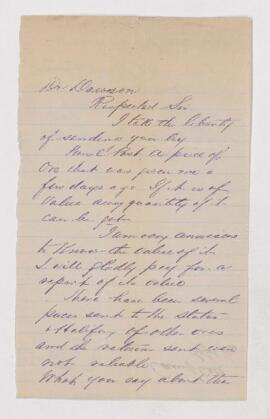 Dr Dawson
Respected Sir
I take the liberty
of sending you by
Parcel Post A piece of
Ore that was given me a
few days ago If it is of
Value any quantity of it
can be got
I am very anxious
to Know the value of it
I will gladly pay for a
report of its value
There have been several
pieces sent to the States
& Halifax of other ores
and the returns sent were
not reliable
What you say about the